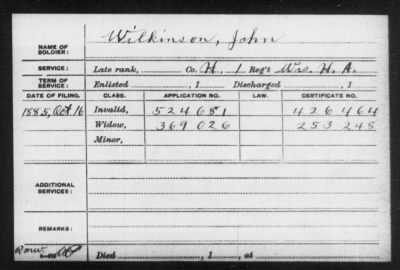 Wilkinson, John
NAME OF
SOLDIER:
SERVICE: Late rank, Co. H, 1 Reg't Wis. H. A.
TERM OF
SERVICE: Enlisted , 1 Discharged , 1
DATE OF FILING. CLASS. APPLICATION NO. LAW. CERTIFICATE NO.
1885, Oct 16 Invalid, 524681 426464
Widow, 369026 253248
Minor,
ADDITIONAL
SERVICES:
REMARKS:
Died , 1 , at